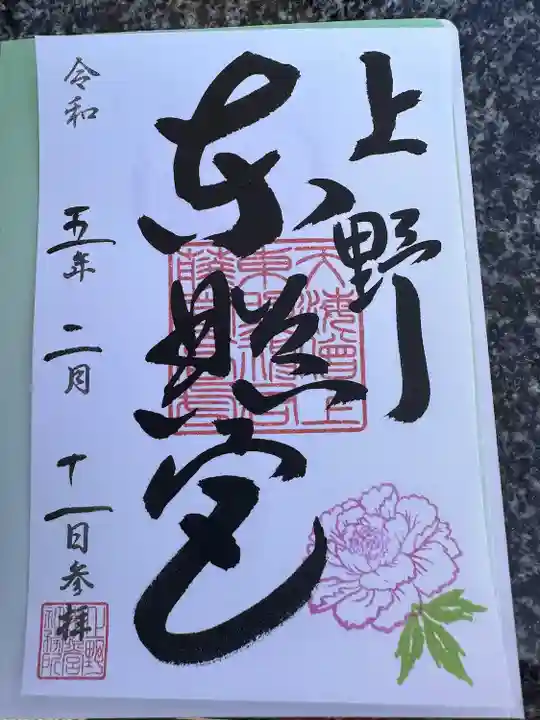 上野
東照宮
令和 五年 二月 十一日参拝